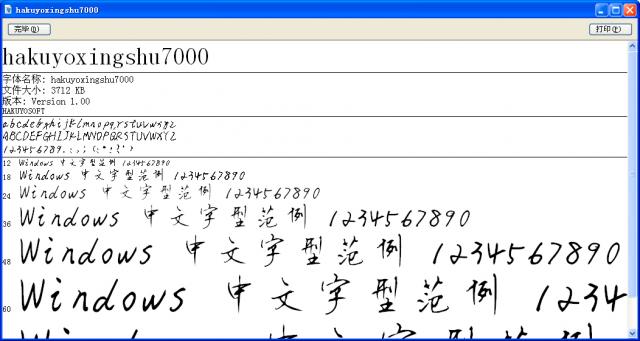 hakuyoxingshu7000
完毕(D)
打印(P)
hakuyoxingshu7000
字体名称: hakuyoxingshu7000
文件大小: 3712 KB
版本: Version 1.00
HAKUYOSOFT
abcdefghijklmnopqrstuvwxyz
ABCDEFGHIJKLMNOPQRSTUVWXYZ
12 Windows 中文字型范例 1234567890
18 Windows 中文字型范例 1234567890
24 Windows 中文字型范例 1234567890
36 Windows 中文字型范例 1234567890
48 Windows 中文字型范例 1234567890
60 Windows 中文字型范例 1234